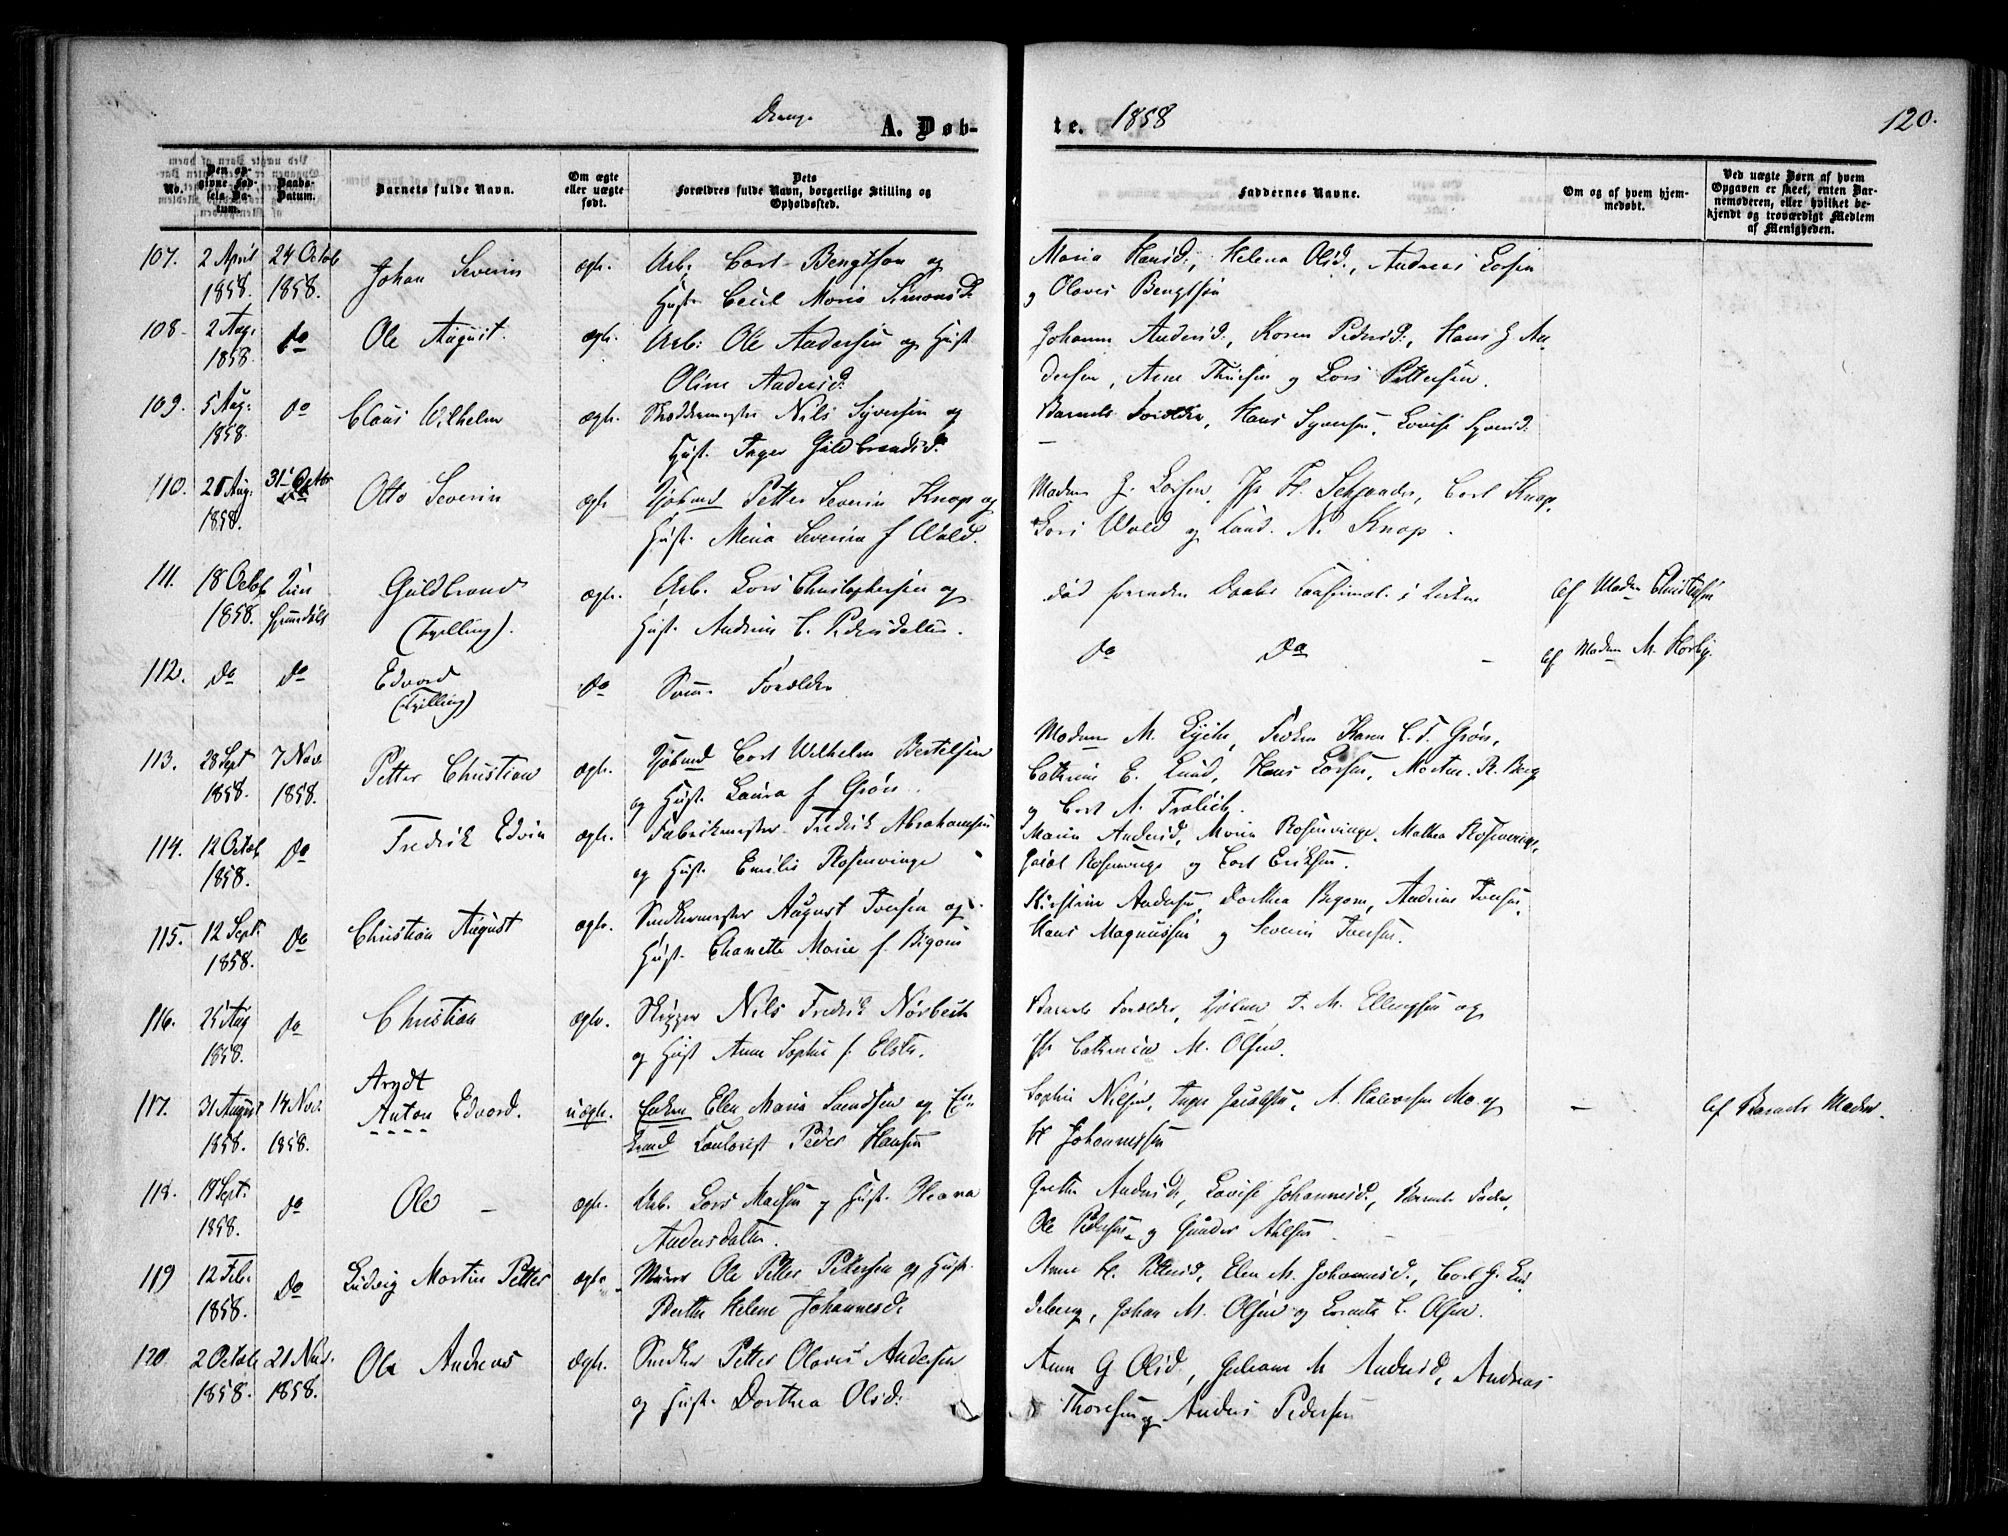 Drenge A. Døb-
te. 1858
120.
No.
Den op-
givne Fød-
sels Da-
tum.
Daabs-
Datum.
Barnets fulde Navn.
Om ægte
eller uægte
født.
Dets
Forældres fulde Navn, borgerlige Stilling og
Opholdssted.
Faddernes Navne.
Om og af hvem hjem-
medøbt.
Ved uægte Børn af hvem
Opgaven er skeet, enten Bar-
nemoderen, eller hvilket be-
kjendt og troværdigt Medlem
af Menigheden.
107. 2 April 24 Octob
1858. 1858.
Johan Severin
ægte.
Arb. Carl Bengtson og
Hust.
Maria Hansd., Helena Olsd., Andreas Larsen
og Olaves Bengtson
108. 2 Aug. do
1858.
Ole August.
ægte.
Arb: Ole Andersen og Hust
Oline Andersd.
Johanne Andersd., Karen Pedersd., Hans G An-
dersen, Arne og Lars Pettersen.
109. 5 Aug: do
1858.
Claus Wilhelm
ægte.
Nils Syversen og
Hust. Inger Guldbrandsd.
Barnets Forældre, Hans Syversen, Lovise Syversd.
110. 21 Aug. 31 Octbr
1858.
Otto Severin
ægte
Petter Severin Knap og
Hust. Severine f Wold.
Madam G. Larsen, Carl Knap,
Lars Wold og N. Knap.
111. 18 Octob
1858.
Guldbrand
(Tvilling).
ægte.
Arb. Lars Christophersen og
Hust. Andrine C. Pedersdatter.
død forinden i Kirken
Af Madam
112. do do
Edvard
(Tvilling)
do
Samme Forældre
do do
Af Madam M.
113. 28 Sept 7 Nov
1858. 1858.
Petter Christian
ægte.
Carl Wilhelm Bertelsen
og Hust. Laura f Grøn.
Madame M. Lyche, Frøken Karen C. F. Grøn,
Cathrine E. Lund, Hans Larsen, Morten R. Berg
og Carl A. Frølich.
114. 12 Octob do
1858.
Fredrik Edvin
ægte.
Fabrikmester Fredrik Abrahamsen
og Hust. Emilie Rosenvinge
Maria Andersd, Maria Rosenvinge, Mathea Rosenvinge,
Jacob Rosenvinge og Carl Eriksen.
115. 12 Sept. do
1858.
Christian August
ægte.
Snedkermester August Iversen og
Hust. Chanette Marie f. Bigom
Kirstine Andersen, Dorthea Bigom, Andrine Iversen,
Hans Magnussen og Severin Iversen.
116. 25 Aug do
1858.
Christian
ægte.
Skipper Nils Fredrik Nørbech
og Hust Anne Sophie f.
Barnets Forældre, M. Ellingsen og
M. Olsen.
117. 31 August 14 Nov.
1858. 1858.
Arndt
Anton Edvard.
uægte.
Enken Elen Maria og En-
kemd Peder Hansen
Sophie Nilsen, Inger Jacobsen, A. Halvorsen Mo og
H Johannesen
–
Af Barnets Moder.
118. 19 Sept. do
1858.
Ole –
ægte.
Arb. Lars Madsen og Hust.
Andersdatter.
Grethe Andersd., Lovise Johannesd., Barnets Fader,
Ole Pedersen og Gunder
119 12 Feb. do
1858.
Ludvig Martin Petter
ægte.
Murer Ole Petter Pettersen og Hust.
Berthe Helene Johannesd.
Anne H. Pettersd., Elen M. Johannesd., Carl G. Lin-
deberg, Johan M. Olsen og C. Olsen.
120 2 Octob 21 Nov.
1858. 1858.
Ole Andreas
ægte.
Snedker Petter Olaves Andersen
og Hust. Dorthea Olsd.
Anne G Olsd, Juliane M Andersd, Andreas
Thoresen og Anders Pedersen